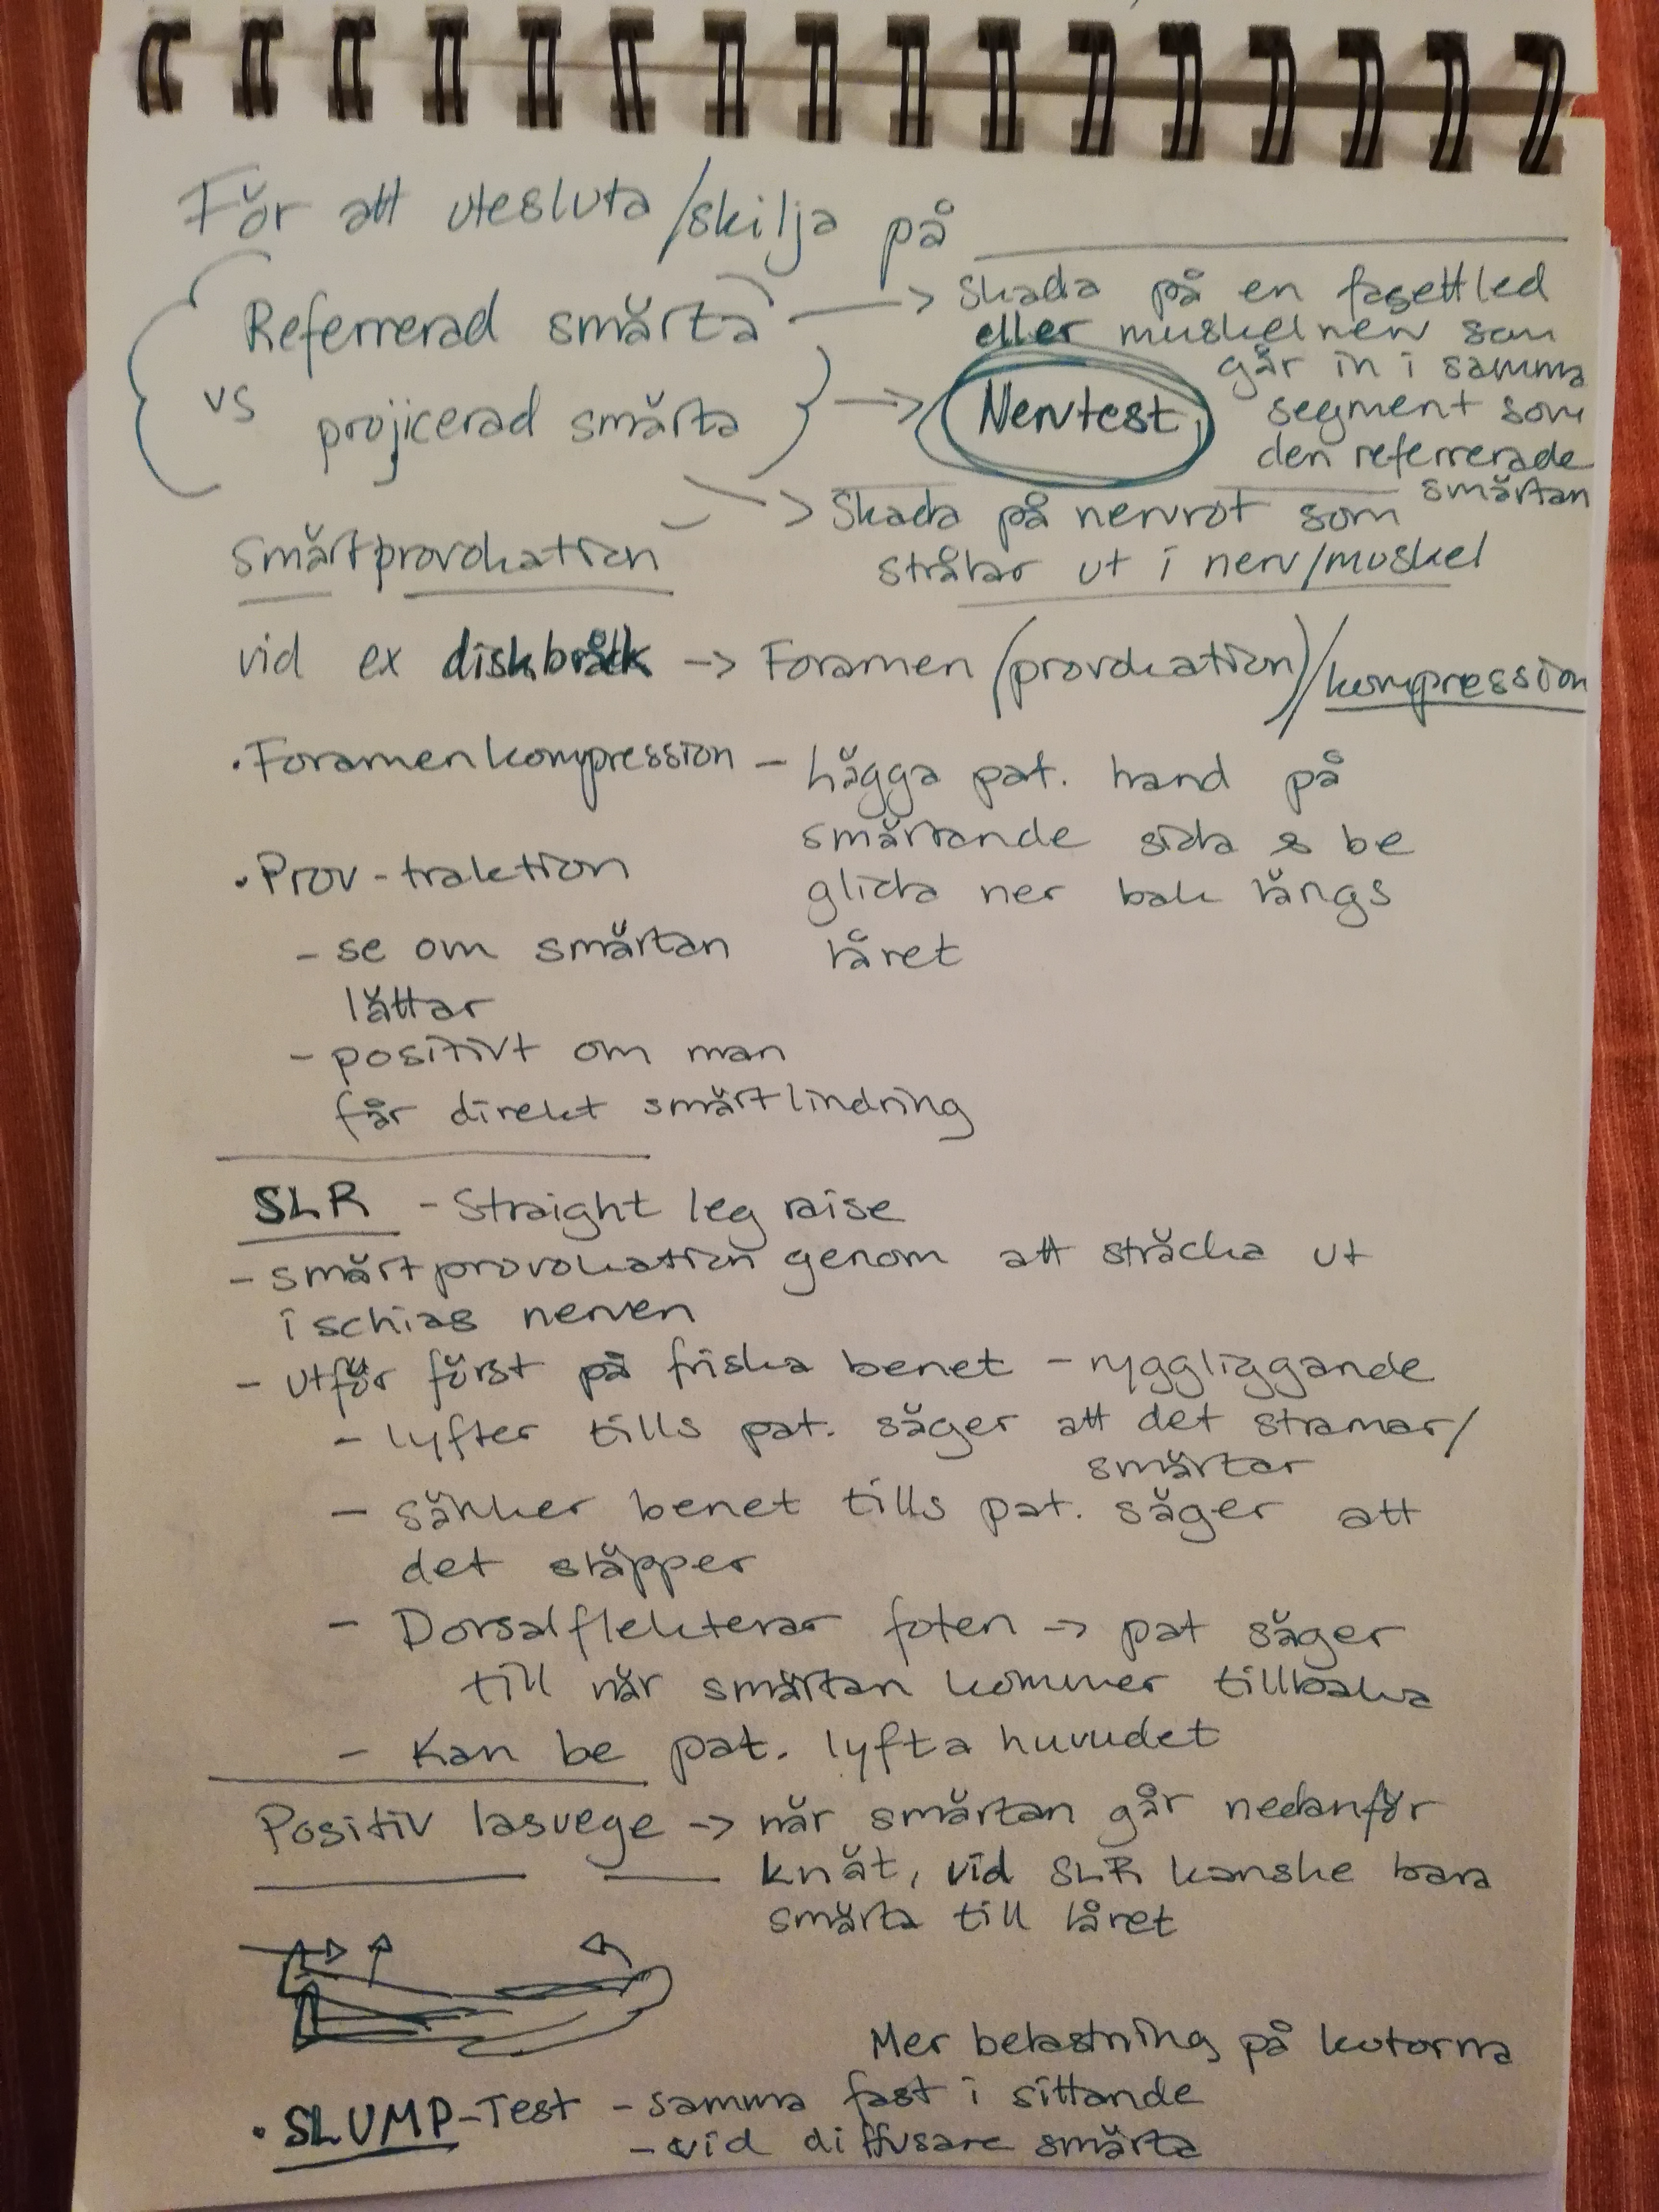 För att utesluta/skilja på
(Referrerad smärta) -> Skada på en fasettled
eller muskelnerv som
går in i samma
segment som
den referrerade
smärtan
vs projicerad smärta -> Nervtest
-> Skada på nervrot som
strålar ut i nerv/muskel
Smärtprovokation
vid ex diskbråck -> Foramen (provokation)/kompression
• Foramenkompression - lägga pat. hand på
smärtande sida & be
glida ner bak längs
låret
• Prov-traktion
- se om smärtan
lättar
- positivt om man
får direkt smärtlindring
SLR - Straight leg raise
- smärtprovokation genom att sträcka ut
ischias nerven
- utför först på friska benet - ryggliggande
- lyfter tills pat. säger att det stramar/
smärtar
- sänker benet tills pat. säger att
det släpper
- Dorsalflekterar foten -> pat säger
till när smärtan kommer tillbaka
- Kan be pat. lyfta huvudet
Positiv lasuege -> när smärtan går nedanför
knät, vid SLR kanske bara
smärta till låret
Mer belastning på kotorna
• SLUMP-Test - samma fast i sittande
- vid diffusare smärta